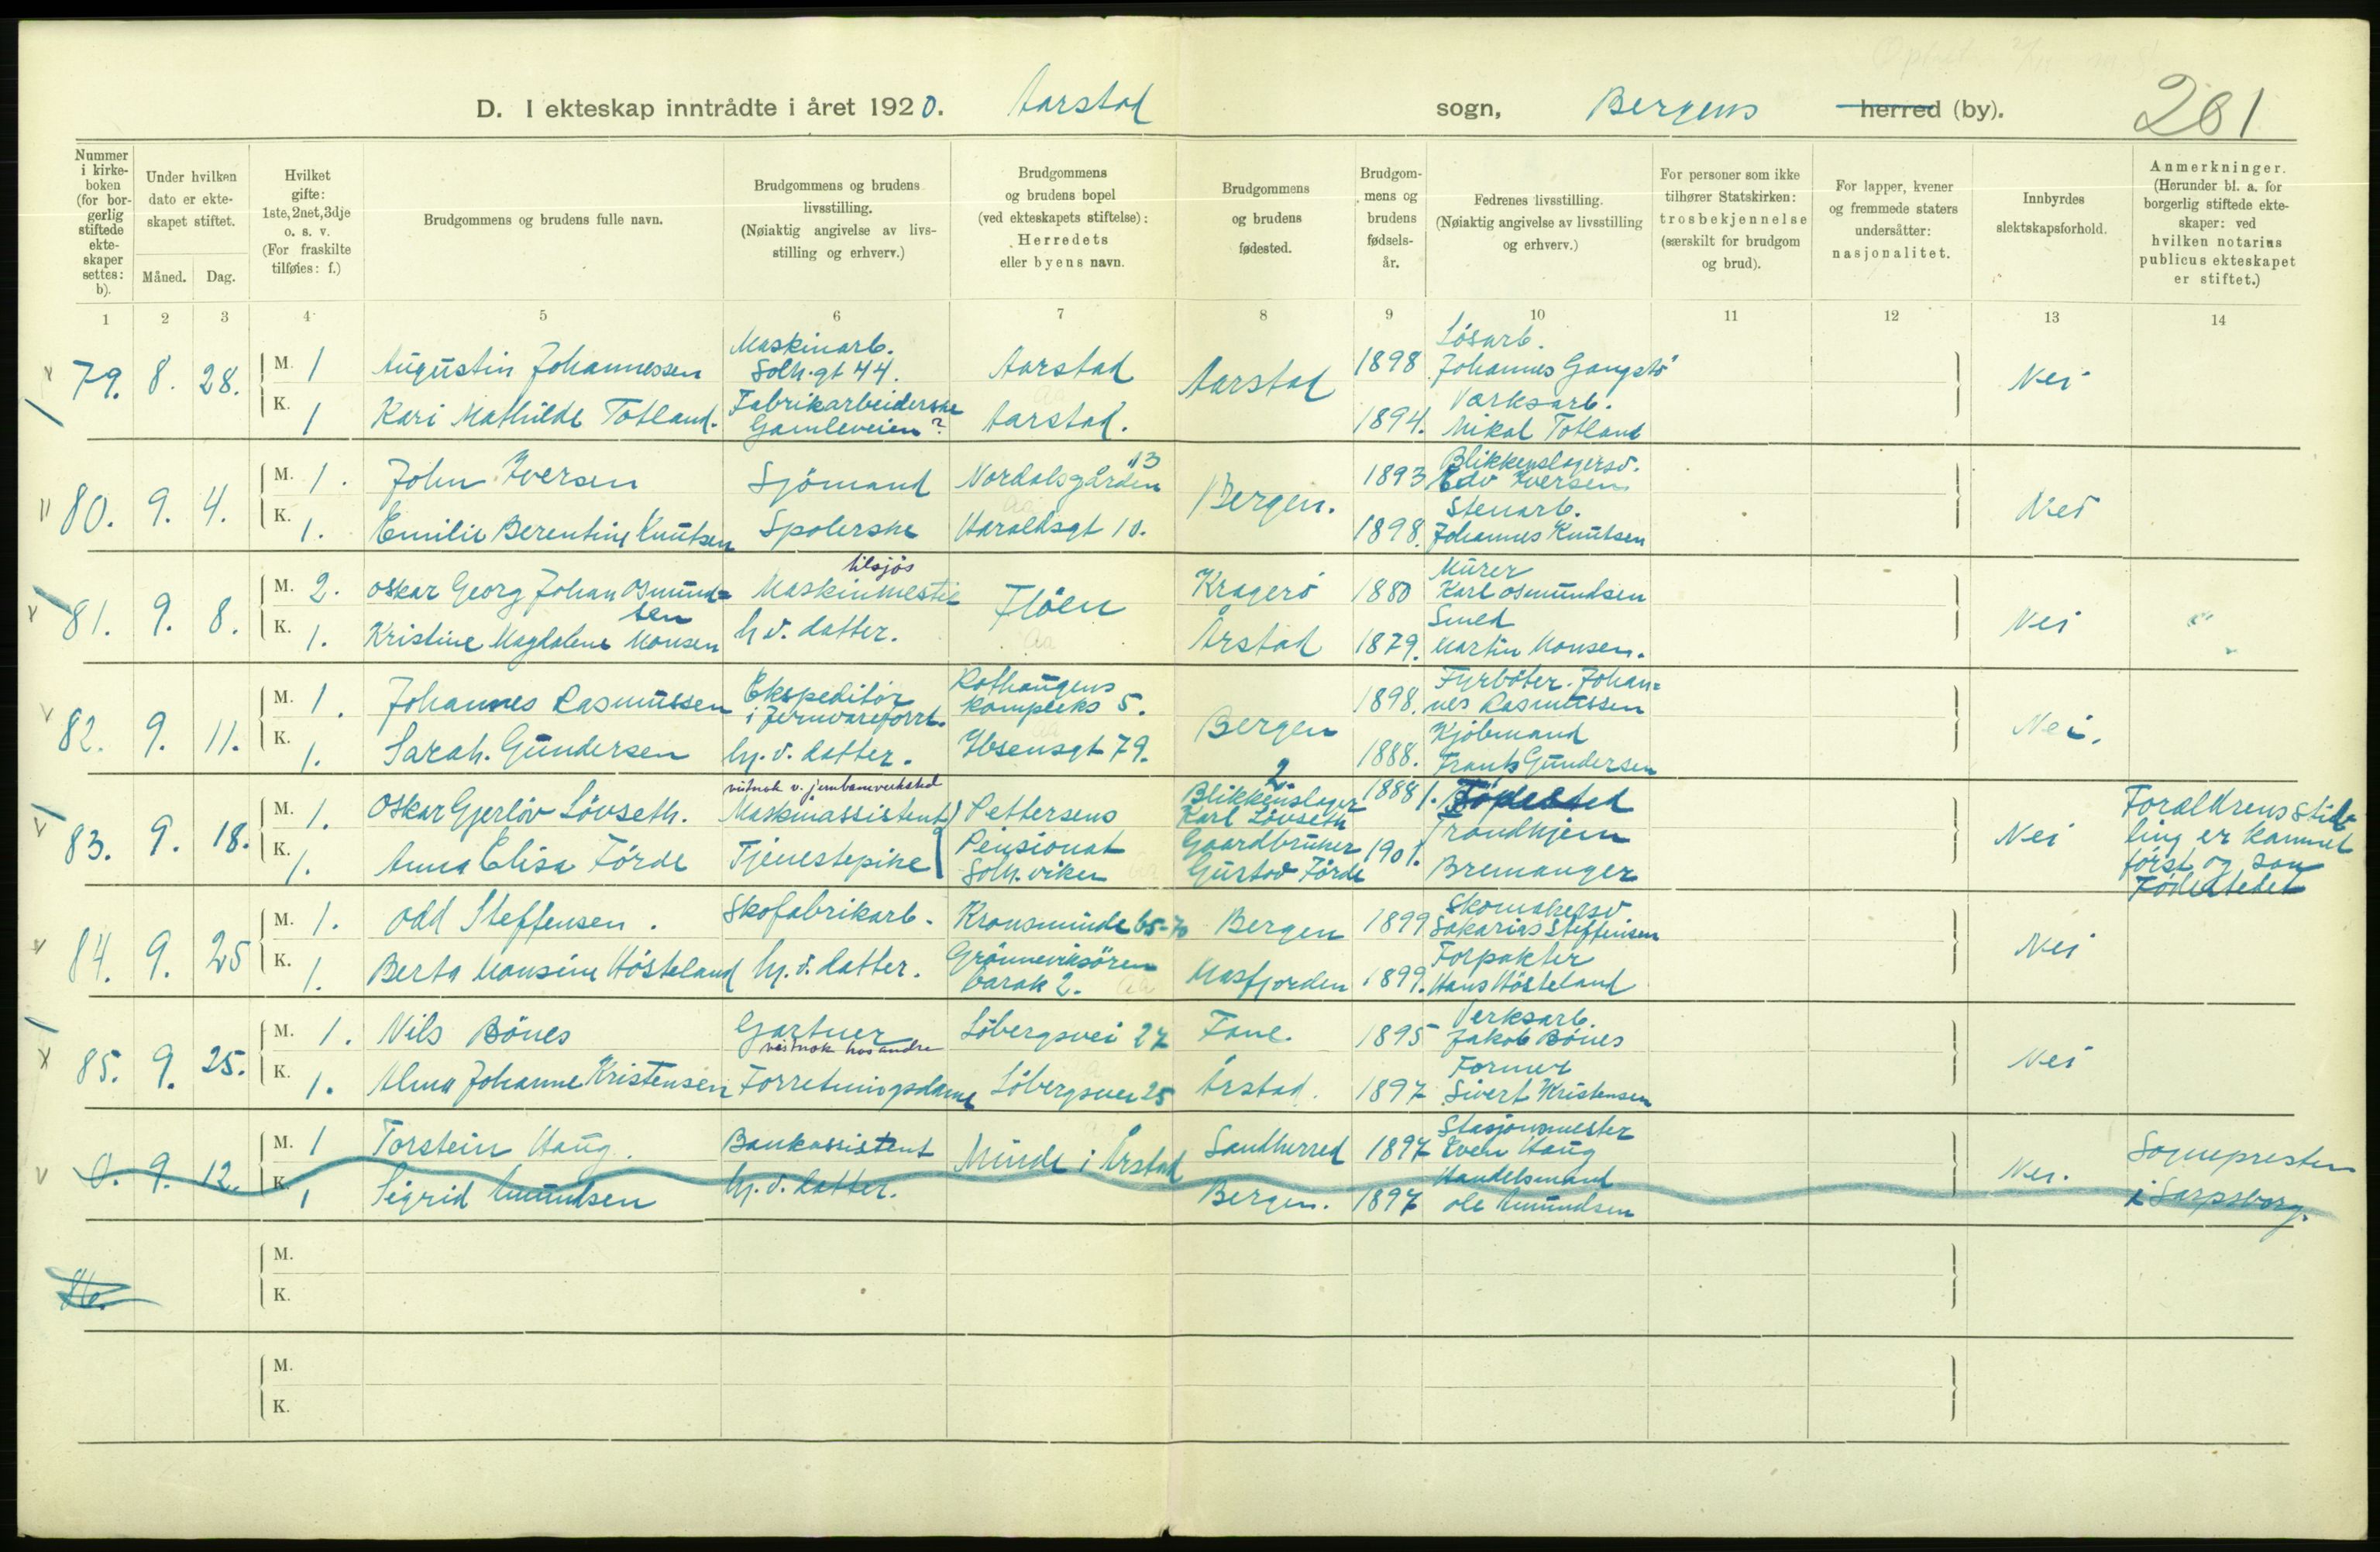 D. I ekteskap inntrådte i året 1920. Aarstad sogn, Bergens herred (by). 261
Nummer i kirkeboken (for borgerlig stiftede ekteskaper settes: b).
Under hvilken dato er ekteskapet stiftet.
Måned. Dag.
Hvilket gifte: 1ste, 2net, 3dje o. s. v. (For fraskilte tilføies: f.)
Brudgommens og brudens fulle navn.
Brudgommens og brudens livsstilling. (Nøiaktig angivelse av livsstilling og erhverv.)
Brudgommens og brudens bopel (ved ekteskapets stiftelse): Herredets eller byens navn.
Brudgommens og brudens fødested.
Brudgommens og brudens fødselsår.
Fedrenes livsstilling. (Nøiaktig angivelse av livsstilling og erhverv.)
For personer som ikke tilhører Statskirken: trosbekjennelse (særskilt for brudgom og brud).
For lapper, kvener og fremmede staters undersåtter: nasjonalitet.
Innbyrdes slektskapsforhold.
Anmerkninger. (Herunder bl. a. for borgerlig stiftede ekteskaper: ved hvilken notarius publicus ekteskapet er stiftet.)
1 2 3 4 5 6 7 8 9 10 11 12 13 14
79. 8. 28. M. 1 Augustin Johannessen Maskinarb. Solh.gt 44. Aarstad Aarstad 1898 Løsarb. Johannes Gangstö Nei
K. 1 Kari Mathilde Totland. Fabrikarbeiderske Gamleveien? Aarstad. 1894. Værksarb. Mikal Totland
80. 9. 4. M. 1. John Iversen Sjömand Nordalsgården 13 Bergen. 1893 Blikkenslagersv. Edv Iversen Nei
K. 1. Emilie Berentine Knutsen Spolerske Haraldsgt 10. 1898. Stenarb. Johannes Knutsen
81. 9. 8. M. 2. Oskar Georg Johan Osmundsen Maskinmester tilsjös Flöen Kragerö 1880 Murer Karl Osmundsen Nei
K. 1. Kristine Magdalene Monsen h.v. datter. Årstad 1879. Smed Martin Monsen.
82. 9. 11. M. 1. Johannes Rasmussen Ekspeditör i Jernvareforr. Rothaugens kompleks 5. Bergen 1898. Fyrböter. Johannes Rasmussen Nei.
K. 1. Sarah. Gundersen hj. v. datter. Ibsensgt 79. 1888. Kjöbmand Frants Gundersen
83. 9. 18. M. 1. Oskar Gjerlöv Lövseth. vistnok v. jernbaneverksted Maskinassistent Pettersens Pensionat Solh.viken 2 Blikkenslager Karl Lövseth 1888 1. Födested Trondhjem Nei Foreldrenes stilling er kommet först og saa Födestedet
K. 1. Anna Elisa Förde Tjenestepike Gaardbruker Gustav Förde 1901. Bremanger
84. 9. 25 M. 1. Odd Steffensen. Skofabrikarb. Kronsminde 65-70 Bergen 1899 Skomakersv Sakarias Steffensen Nei
K. 1. Berta Monsine Hösteland hj. v. datter. Grönneviksören barak 2. Masfjorden 1899. Forpakter Hans Hösteland
85. 9. 25. M. 1. Nils Bönes Gartner vistnok hos andre Löbergsvei 27 Fane. 1895 Verksarb. Jakob Bönes Nei
K. 1. Alma Johanne Kristensen Forretningsdame Löbergsvei 25 Årstad. 1897 Former Sivert Kristensen
0. 9. 12. M. 1 Torstein Haug. Bankassistent Minde i Årstad Sandherred 1897 Stasjonsmester Even Haug Nei. Sognepresten i Sarpsborg.
K. 1 Sigrid Amundsen hj. v. datter. Bergen. 1897 Handelsmand Ole Amundsen
86. M.
K.
M.
K.